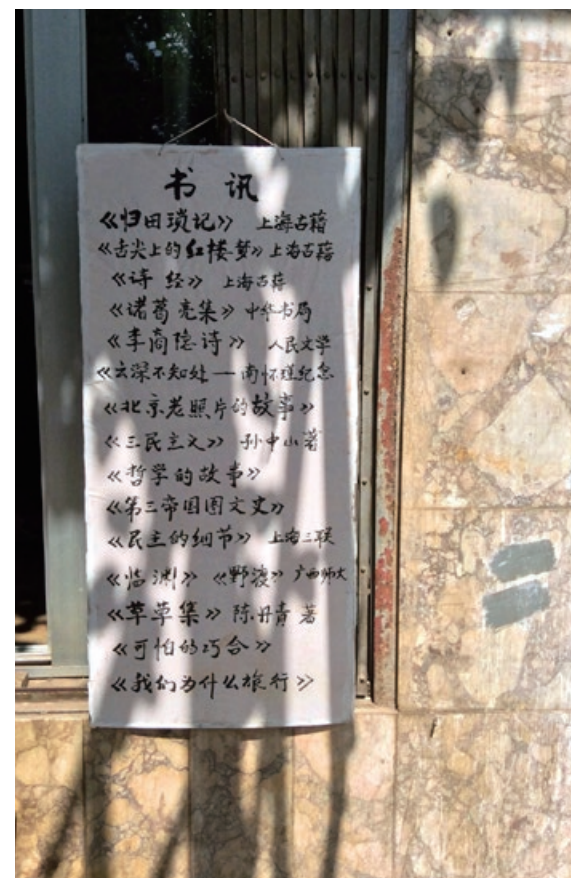 书讯
《归田琐记》 上海古籍
《舌尖上的红楼梦》上海古籍
《诗经》 上海古籍
《诸葛亮集》中华书局
《李商隐诗》 人民文学
《云深不知处——南怀瑾纪念
《北京老照片的故事》
《三民主义》 孙中山著
《哲学的故事》
《第三帝国图文史》
《民主的细节》 上海三联
《临渊》《野渡》广西师大
《草草集》陈丹青 著
《可怕的巧合》
《我们为什么旅行》